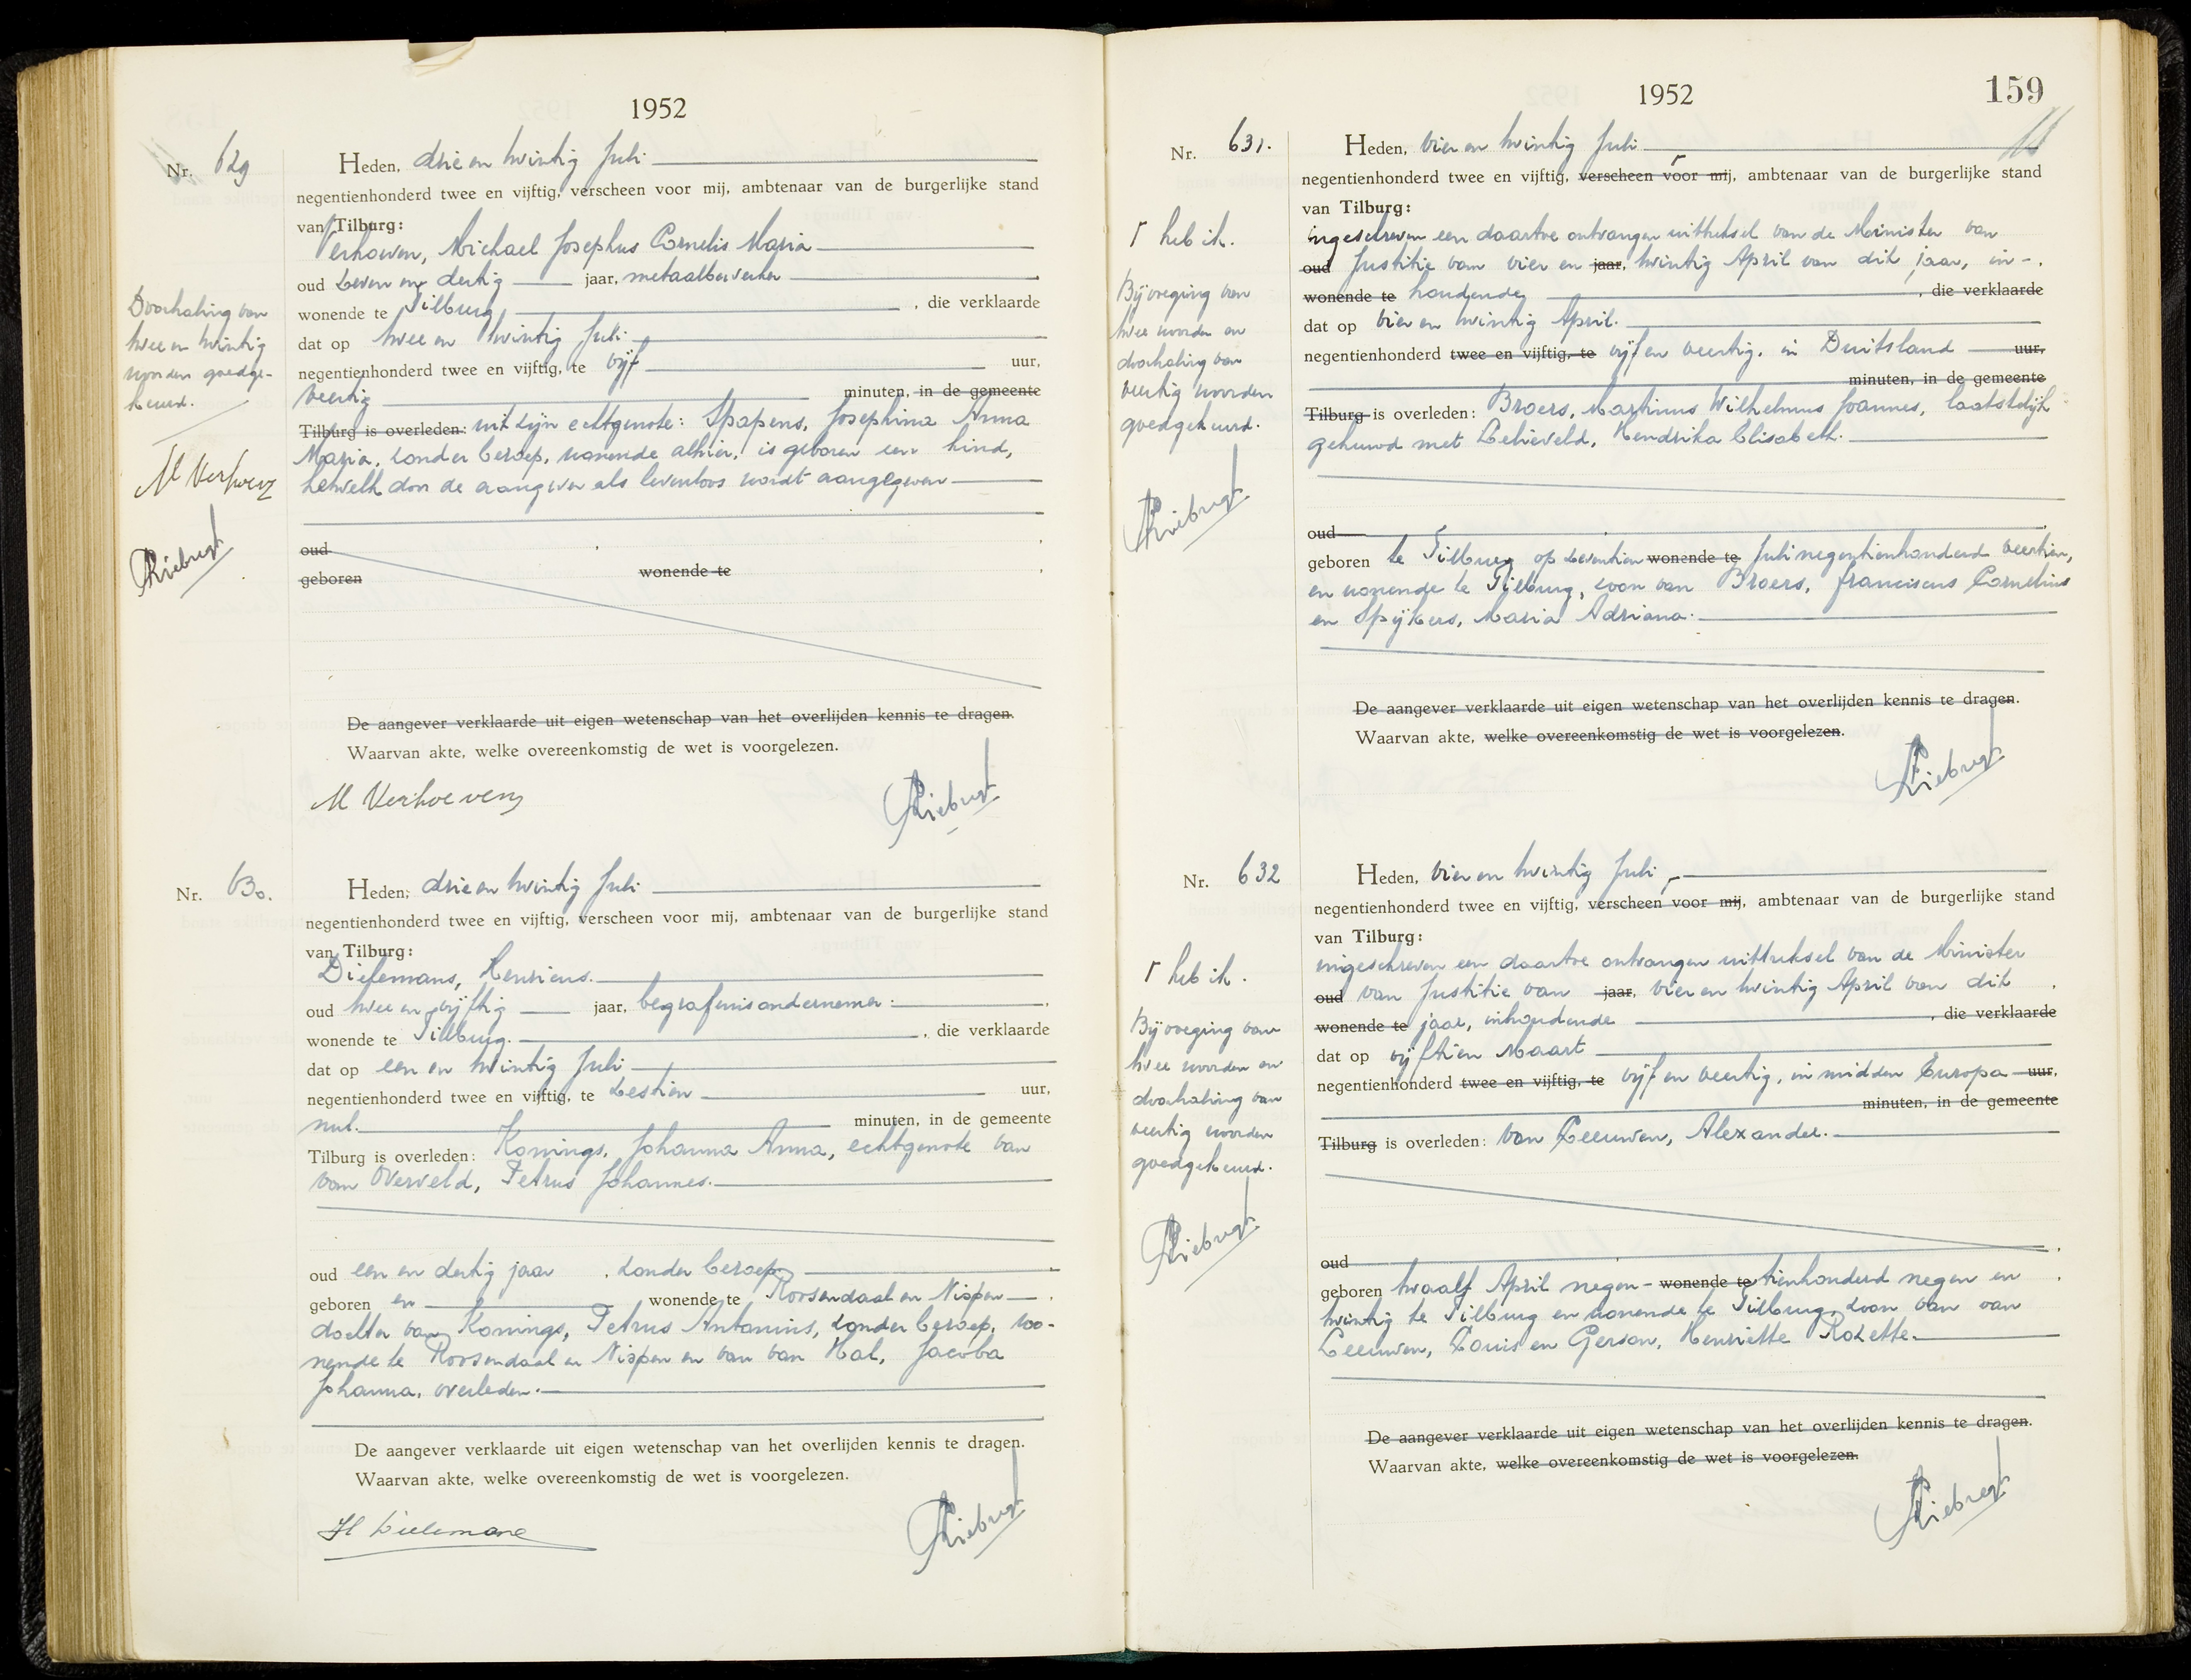 1952
Nr. 629
Heden, drie en twintig Juli
negentienhonderd twee en vijftig, verscheen voor mij, ambtenaar van de burgerlijke stand
van Tilburg:
Verhoeven, Michael Josephus Cornelis Maria
oud zeven en dertig jaar, metaalbewerker
wonende te Tilburg, die verklaarde
dat op twee en twintig Juli
negentienhonderd twee en vijftig, te vijf uur,
veertig minuten, in de gemeente
Tilburg is overleden: uit zijn echtgenote: Spapens, Josephina Anna
Maria, zonder beroep, wonende alhier, is geboren een kind,
hetwelk door de aangever als levenloos wordt aangegeven
oud
geboren wonende te
De aangever verklaarde uit eigen wetenschap van het overlijden kennis te dragen.
Waarvan akte, welke overeenkomstig de wet is voorgelezen.
M Verhoeven
Doorhaling van
twee en twintig
woorden goedge-
keurd.
M Verhoeven
Nr. 630.
Heden, drie en twintig Juli
negentienhonderd twee en vijftig, verscheen voor mij, ambtenaar van de burgerlijke stand
van Tilburg:
Dielemans, Henricus.
oud twee en vijftig jaar, begrafenisondernemer
wonende te Tilburg, die verklaarde
dat op een en twintig Juli
negentienhonderd twee en vijftig, te zestien uur,
nul. minuten, in de gemeente
Tilburg is overleden: Konings, Johanna Anna, echtgenote van
van Overveld, Petrus Johannes.
oud een en dertig jaar, zonder beroep
geboren en wonende te Roosendaal en Nispen
dochter van Konings, Petrus Antonius, zonder beroep, wo-
nende te Roosendaal en Nispen en van van Hal, Jacoba
Johanna, overleden.
De aangever verklaarde uit eigen wetenschap van het overlijden kennis te dragen.
Waarvan akte, welke overeenkomstig de wet is voorgelezen.
H Dielemans
1952
159
Nr. 631.
Heden, vier en twintig Juli
negentienhonderd twee en vijftig, verscheen voor mij, ambtenaar van de burgerlijke stand
van Tilburg:
ingeschreven een daartoe ontvangen uittreksel van de Minister van
oud Justitie van vier en jaar, twintig April van dit jaar, in-
wonende te houdende, die verklaarde
dat op vier en twintig April.
negentienhonderd twee en vijftig, te vijf en veertig, in Duitsland uur,
minuten, in de gemeente
Tilburg is overleden: Broers, Martinus Wilhelmus Joannes, laatstelijk
gehuwd met Lelieveld, Hendrika Elisabeth.
oud
geboren te Tilburg op zeventien wonende te Juli negentienhonderd veertien,
en wonende te Tilburg, zoon van Broers, Franciscus Cornelius
en Spijkers, Maria Adriana.
De aangever verklaarde uit eigen wetenschap van het overlijden kennis te dragen.
Waarvan akte, welke overeenkomstig de wet is voorgelezen.
heb ik.
Bijvoeging van
twee woorden en
doorhaling van
veertig woorden
goedgekeurd.
Nr. 632
Heden, vier en twintig Juli
negentienhonderd twee en vijftig, verscheen voor mij, ambtenaar van de burgerlijke stand
van Tilburg:
ingeschreven een daartoe ontvangen uittreksel van de Minister
oud van Justitie van jaar, vier en twintig April van dit
wonende te jaar, inhoudende, die verklaarde
dat op vijftien Maart
negentienhonderd twee en vijftig, te vijf en veertig, in midden Europa uur,
minuten, in de gemeente
Tilburg is overleden: van Leeuwen, Alexander.
oud
geboren twaalf April negen- wonende te tienhonderd negen en
twintig te Tilburg en wonende te Tilburg, zoon van van
Leeuwen, Louis en Gerson, Henriette Rozette.
De aangever verklaarde uit eigen wetenschap van het overlijden kennis te dragen.
Waarvan akte, welke overeenkomstig de wet is voorgelezen.
heb ik.
Bijvoeging van
twee woorden en
doorhaling van
veertig woorden
goedgekeurd.